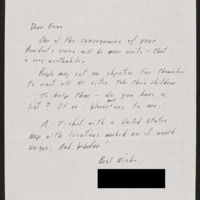 Dear
One of the consequences of your
Presidents series will be more visits - that
is very worthwhile.
People may set an objective for themselves
to visit all 41 sites. Take their children.
To help them - do you have a
list? If so - please to me.
A T-shirt with a United States
map with locations marked on it would
unique. And popular!
Best Wishes